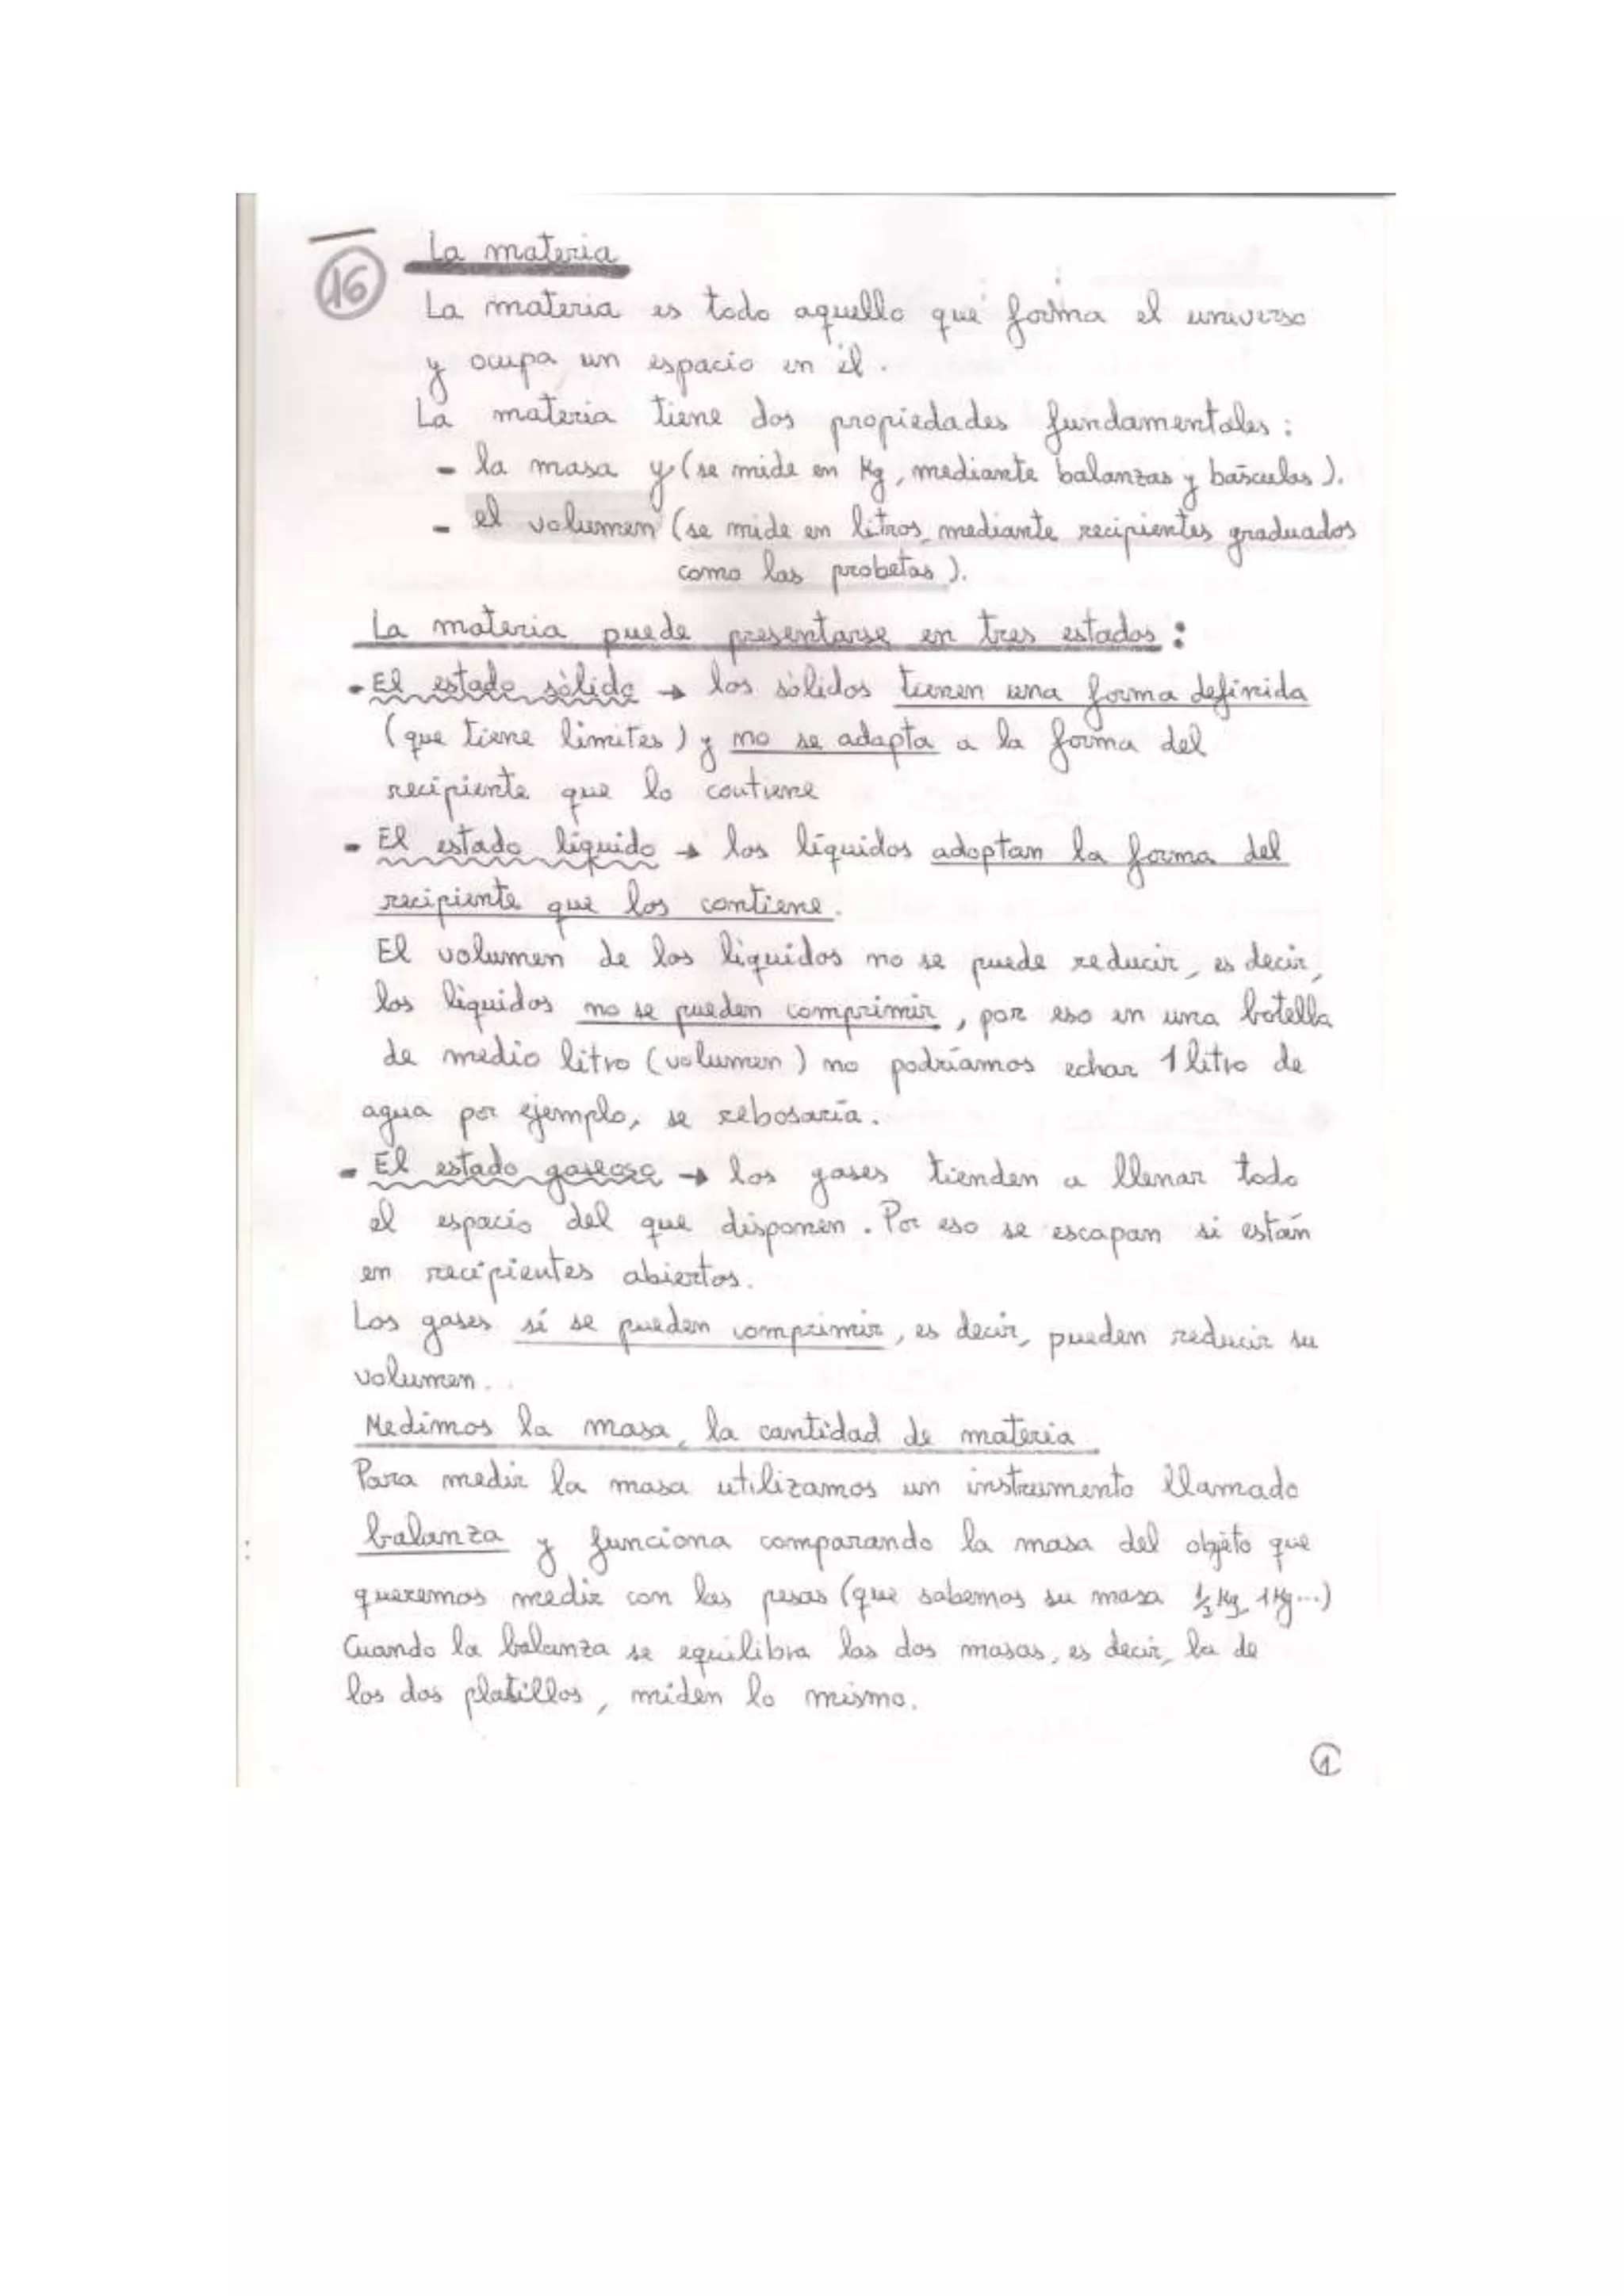 16 La materia
La materia es todo aquello que forma el universo
y ocupa un espacio en él.
La materia tiene dos propiedades fundamentales:
- la masa y (se mide en Kg, mediante balanzas y básculas).
- el volumen (se mide en litros, mediante recipientes graduados
como las probetas).
La materia puede presentarse en tres estados:
- El estado sólido → los sólidos tienen una forma definida
(que tiene límites) y no se adapta a la forma del
recipiente que lo contiene
- El estado líquido → los líquidos adoptan la forma del
recipiente que los contiene.
El volumen de los líquidos no se puede reducir, es decir,
los líquidos no se pueden comprimir, por eso en una botella
de medio litro (volumen) no podríamos echar 1 litro de
agua por ejemplo, se rebosaría.
- El estado gaseoso → los gases tienden a llenar todo
el espacio del que disponen. Por eso se escapan si están
en recipientes abiertos.
Los gases sí se pueden comprimir, es decir, pueden reducir su
volumen.
Medimos la masa, la cantidad de materia
Para medir la masa utilizamos un instrumento llamado
balanza y funciona comparando la masa del objeto que
queremos medir con las pesas (que sabemos su masa ½ Kg, 1 Kg...)
Cuando la balanza se equilibra las dos masas, es decir, la de
los dos platillos, miden lo mismo.
1